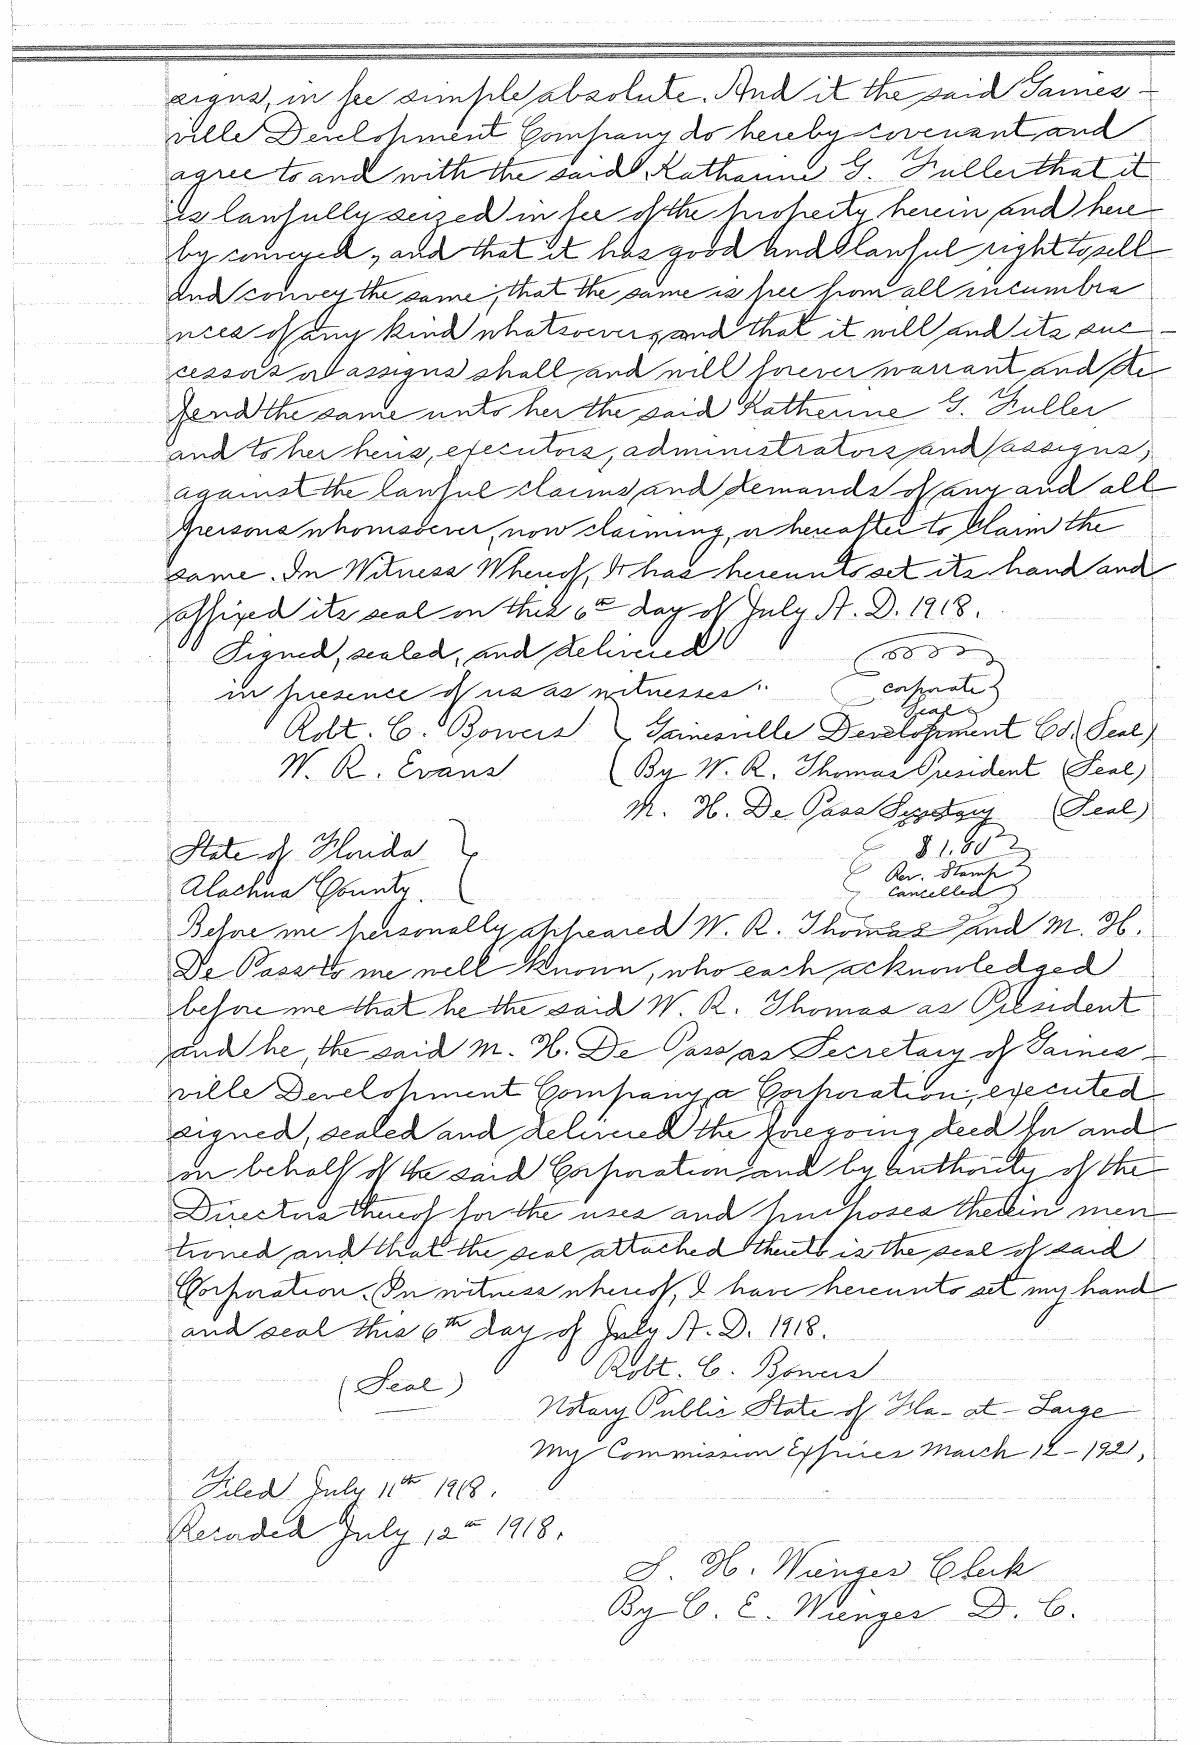 signs, in fee simple absolute. And it the said Gaines-
ville Development Company do hereby covenant and
agree to and with the said Katharine G. Fuller that it
is lawfully seized in fee of the property herein and here
by conveyed, and that it has good and lawful right to sell
and convey the same; that the same is free from all incumbra
nces of any kind whatsoever, and that it will and its suc-
cessors or assigns shall and will forever warrant and de
fend the same unto her the said Katherine G. Fuller
and to her heirs, executors, administrators and assigns,
against the lawful claims and demands of any and all
persons whomsoever, now claiming, or hereafter to claim the
same. In Witness Whereof, It has hereunto set its hand and
affixed its seal on this 6th day of July A. D. 1918.
Signed, sealed, and delivered
in presence of us as witnesses: corporate
Seal
Robt. C. Bowers Gainesville Development Co. (Seal)
W. R. Evans By W. R. Thomas President (Seal)
M. H. De Pass Secretary (Seal)
State of Florida $1.00
Rev. Stamp
Alachua County. Cancelled
Before me personally appeared W. R. Thomas and M. H.
De Pass to me well known, who each acknowledged
before me that he the said W. R. Thomas as President
and he, the said M. H. De Pass as Secretary of Gaines-
ville Development Company, a Corporation, executed
signed, sealed and delivered the foregoing deed for and
in behalf of the said Corporation and by authority of the
Directors thereof for the uses and purposes therein men
tioned and that the seal attached thereto is the seal of said
Corporation. In witness whereof, I have hereunto set my hand
and seal this 6th day of July A. D. 1918.
Robt. C. Bowers
(Seal)
Notary Public State of Fla- at- Large
My Commission Expires March 12-1921,
Filed July 11th 1918.
Recorded July 12th 1918.
S. H. Wienges Clerk
By C. E. Wienges D. C.